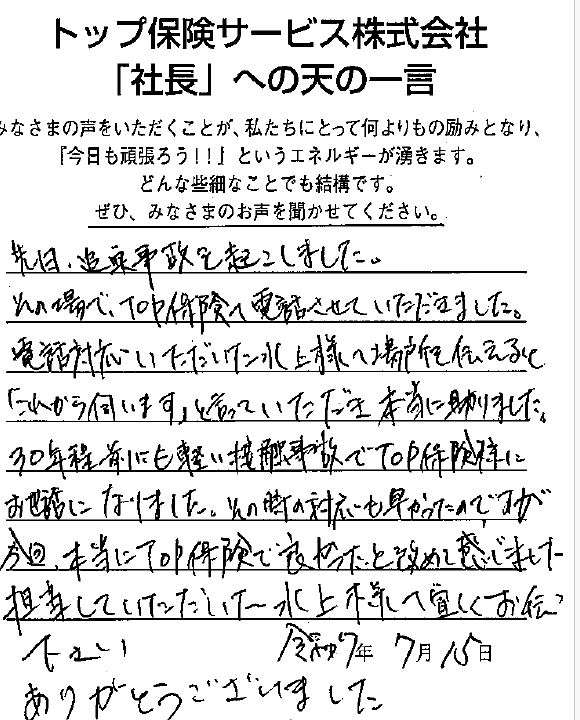 トップ保険サービス株式会社
「社長」への天の一言
みなさまの声をいただくことが、私たちにとって何よりもの励みとなり、
『今日も頑張ろう！！』というエネルギーが湧きます。
どんな些細なことでも結構です。
ぜひ、みなさまのお声を聞かせてください。
先日、追突事故を起こしました。
その場で、TOP保険へ電話させていただきました。
電話対応いただいた水上様へ場所を伝えると
「これから伺います」と言っていただき本当に助かりました。
30年程前にも軽い接触事故でTOP保険様に
お世話になりました。その時の対応も早かったのですが
今回、本当にTOP保険で良かったと改めて感じました
担当していただいた水上様へ宜しくお伝え
下さい 令和7年 7月15日
ありがとうございました